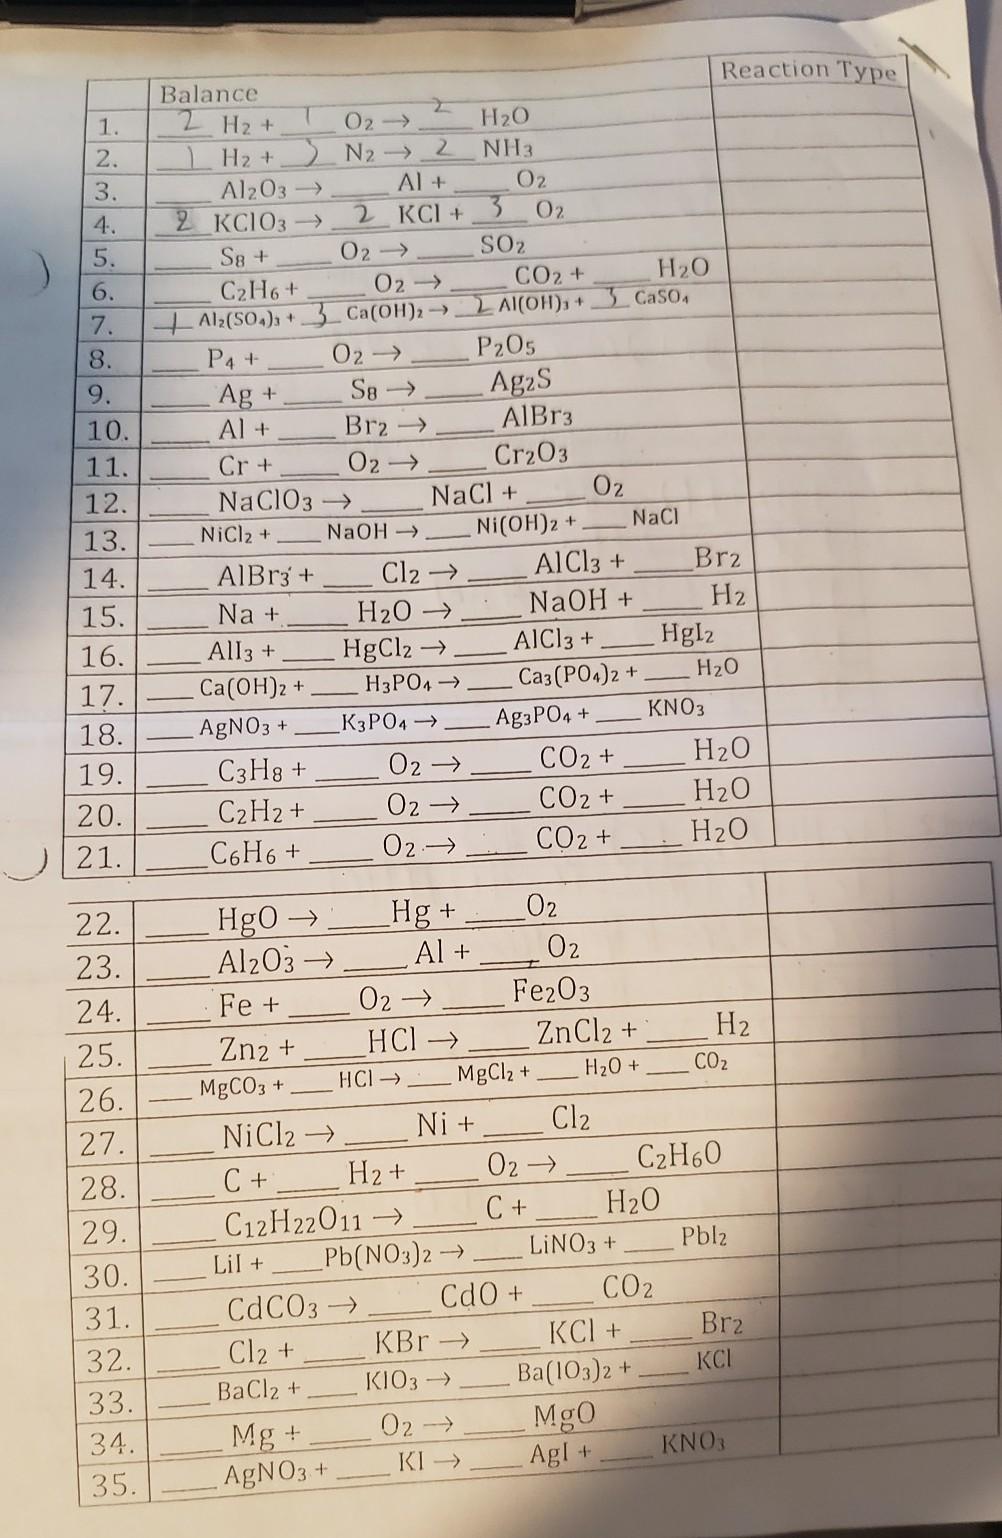 Balance Reaction Type
1. 2 H2 + 1 O2 → 2 H2O
2. 1 H2 + N2 → 2 NH3
3. ___ Al2O3 → ___ Al + ___ O2
4. 2 KClO3 → 2 KCl + 3 O2
5. ___ S8 + ___ O2 → ___ SO2
6. ___ C2H6 + ___ O2 → ___ CO2 + ___ H2O
7. 1 Al2(SO4)3 + 3 Ca(OH)2 → 2 Al(OH)3 + 3 CaSO4
8. ___ P4 + ___ O2 → ___ P2O5
9. ___ Ag + ___ S8 → ___ Ag2S
10. ___ Al + ___ Br2 → ___ AlBr3
11. ___ Cr + ___ O2 → ___ Cr2O3
12. ___ NaClO3 → ___ NaCl + ___ O2
13. ___ NiCl2 + ___ NaOH → ___ Ni(OH)2 + ___ NaCl
14. ___ AlBr3 + ___ Cl2 → ___ AlCl3 + ___ Br2
15. ___ Na + ___ H2O → ___ NaOH + ___ H2
16. ___ AlI3 + ___ HgCl2 → ___ AlCl3 + ___ HgI2
17. ___ Ca(OH)2 + ___ H3PO4 → ___ Ca3(PO4)2 + ___ H2O
18. ___ AgNO3 + ___ K3PO4 → ___ Ag3PO4 + ___ KNO3
19. ___ C3H8 + ___ O2 → ___ CO2 + ___ H2O
20. ___ C2H2 + ___ O2 → ___ CO2 + ___ H2O
21. ___ C6H6 + ___ O2 → ___ CO2 + ___ H2O
22. ___ HgO → ___ Hg + ___ O2
23. ___ Al2O3 → ___ Al + ___ O2
24. ___ Fe + ___ O2 → ___ Fe2O3
25. ___ Zn2 + ___ HCl → ___ ZnCl2 + ___ H2
26. ___ MgCO3 + ___ HCl → ___ MgCl2 + ___ H2O + ___ CO2
27. ___ NiCl2 → ___ Ni + ___ Cl2
28. ___ C + ___ H2 + ___ O2 → ___ C2H6O
29. ___ C12H22O11 → ___ C + ___ H2O
30. ___ LiI + ___ Pb(NO3)2 → ___ LiNO3 + ___ PbI2
31. ___ CdCO3 → ___ CdO + ___ CO2
32. ___ Cl2 + ___ KBr → ___ KCl + ___ Br2
33. ___ BaCl2 + ___ KIO3 → ___ Ba(IO3)2 + ___ KCl
34. ___ Mg + ___ O2 → ___ MgO
35. ___ AgNO3 + ___ KI → ___ AgI + ___ KNO3